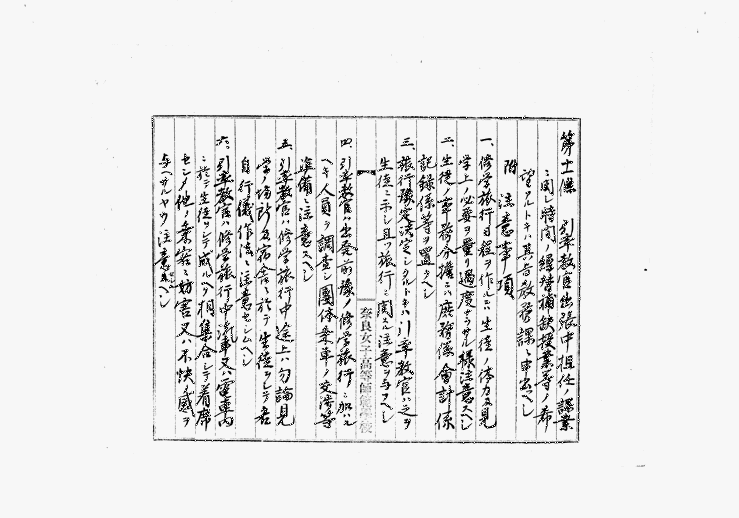 第十一條 引率教官出張中担任ノ課業
ニ関シ時間ノ繰替補缺授業等ノ希
望アルトキハ其旨教務課ニ申出ベシ
附 注意事項
一、修学旅行日程ヲ作ルニハ生徒ノ体力及見
学上ノ必要ヲ量リ過度ナラザル様注意スベシ
二、生徒ノ事務分擔ニハ庶務係會計係
記録係等ヲ置クベシ
三、旅行豫定決定シタルトキハ引率教官ハ之ヲ
生徒ニ示シ且ツ旅行ニ関スル注意ヲ与フベシ
奈良女子高等師範学校
四、引率教官ハ出発前豫メ修学旅行ニ加ハル
ベキ人員ヲ調査シ團体乗車ノ交渉等
準備ニ注意スベシ
五、引率教官ハ修学旅行中途上ハ勿論見
学ノ場所及宿舎ニ於テ生徒ヲシテ各
自行儀作法ニ注意セシムベシ
六、引率教官ハ修学旅行中汽車又ハ電車内
ニ於テ生徒ヲシテ成ルベク相集合シテ着席
セシメ他ノ乗客ニ妨害又ハ不快ノ感ヲ
与ヘザルヤウ注意スベシ